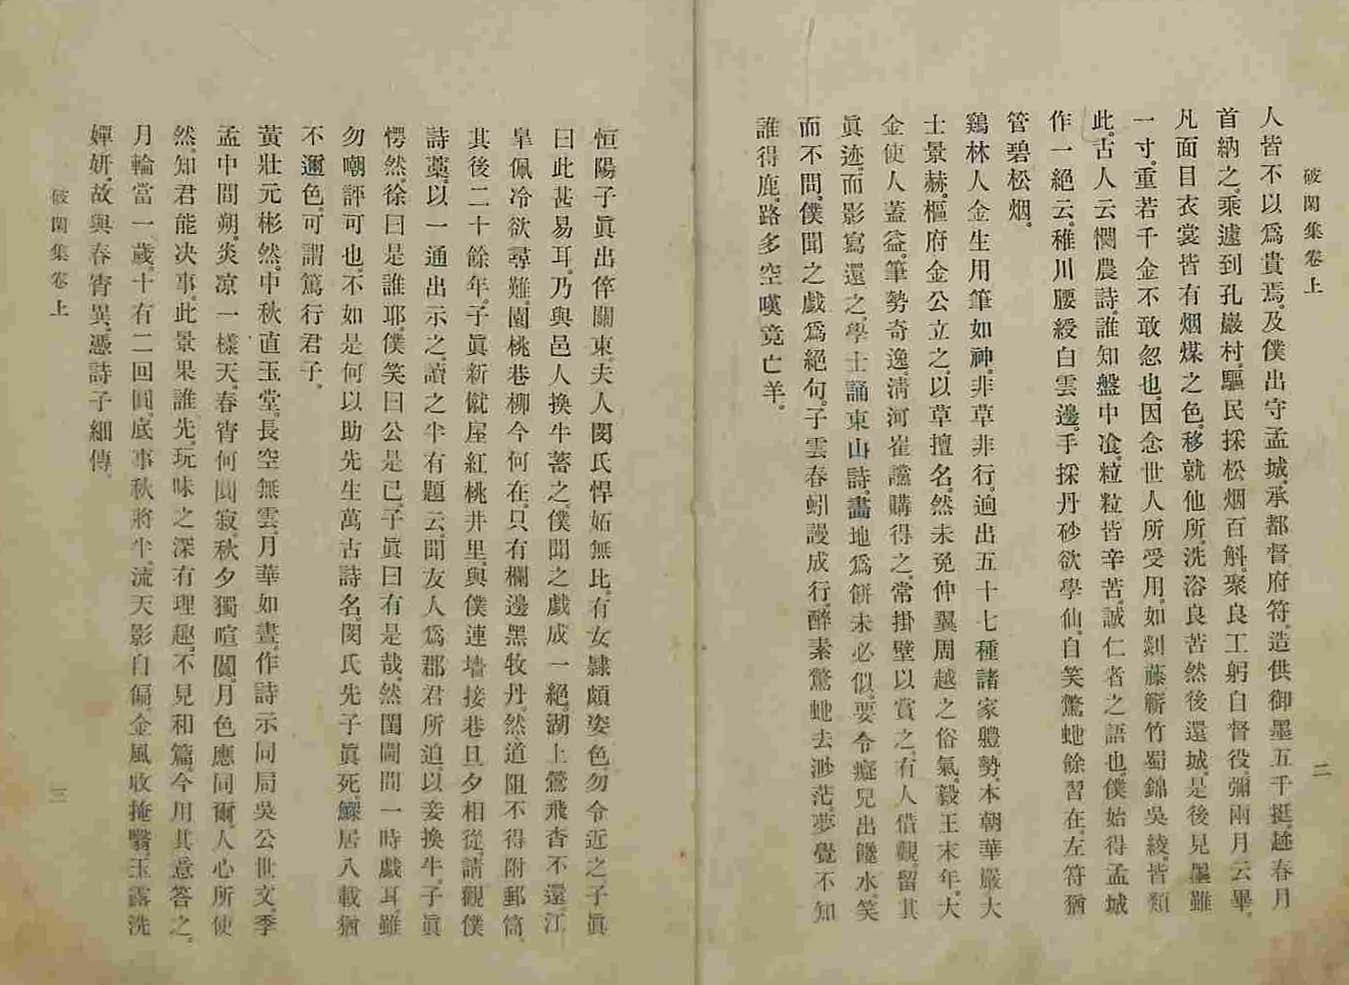 破閑集卷上
二
人皆不以爲貴焉。及僕出守孟城。承都督府符。造供御墨五千挺。趂春月
首納之。乘遽到孔巖村。驅民採松烟百斛。聚良工躬自督役。彌兩月云畢。
凡面目衣裳皆有烟煤之色。移就他所。洗浴良苦然後還城。是後見墨雖
一寸。重若千金不敢忽也。因念世人所受用。如剡藤蘄竹蜀錦吳綾。皆類
此。古人云憫農詩。誰知盤中飡。粒粒皆辛苦。誠仁者之語也。僕始得孟城
作一絕云。稚川腰綬白雲邊。手採丹砂欲學仙。自笑驚虵餘習在。左符猶
管碧松烟。
鷄林人金生用筆如神。非草非行。逈出五十七種諸家軆勢。本朝華嚴大
士景赫。樞府金公立之。以草擅名。然未免仲翼周越之俗氣。毅王末年。大
金使人蓋益。筆勢奇逸。淸河崔讜購得之。常掛壁以賞之。有人借觀。留其
眞迹。而影寫還之。學士誦東山詩。畵地爲餠未必似。要令癡兒出饞水。笑
而不問。僕聞之戲爲絕句。子雲春蚓謾成行。醉素驚虵去渺茫。夢覺不知
誰得鹿。路多空嘆竟亡羊。
恒陽子眞出倅關東。夫人閔氏悍妬無比。有女隷頗姿色。勿令近之子眞
曰此甚易耳。乃與邑人換牛蓄之。僕聞之戲成一絕。湖上鶯飛杳不還。江
皐佩冷欲尋難。園桃巷柳今何在。只有欄邊黑牧丹。然道阻不得附郵筒。
其後二十餘年。子眞新僦屋紅桃井里。與僕連墻接巷旦夕相從。請觀僕
詩藁。以一通出示之。讀之半有題云。聞友人爲郡君所迫。以妾換牛。子眞
愕然徐曰是誰耶。僕笑曰公是已。子眞曰有是哉。然閨闥間一時戲耳。雖
勿嘲評可也。不如是何以助先生萬古詩名。閔氏先子眞死。鰥居八載猶
不邇色。可謂篤行君子。
黃壯元彬然。中秋直玉堂。長空無雲。月華如晝。作詩示同局吳公世文。季
孟中間朔。炎凉一樣天。春宵何闃寂。秋夕獨喧闐。月色應同爾。人心所使
然。知君能决事。此景果誰先。玩味之深有理趣。不見和篇。今用其意答之。
月輪當一歲。十有二回圓。底事秋將半。流天影自偏。金風收掩翳。玉露洗
嬋姸。故與春宵異。憑詩子細傳。
破閑集卷上
三